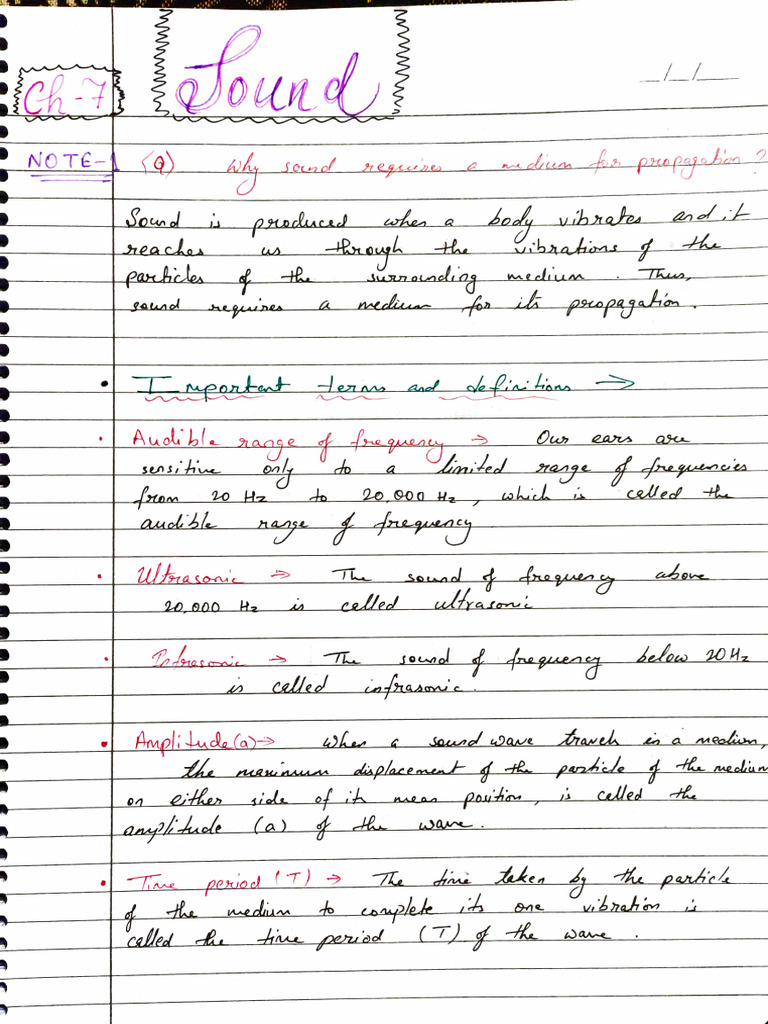 Ch-7
Sound
_/_/_
NOTE-1 (Q) Why sound requires a medium for propagation?
Sound is produced when a body vibrates and it
reaches us through the vibrations of the
particles of the surrounding medium. Thus,
sound requires a medium for its propagation.
• Important terms and definitions →
• Audible range of frequency → Our ears are
sensitive only to a limited range of frequencies
from 20 Hz to 20,000 Hz, which is called the
audible range of frequency
• Ultrasonic → The sound of frequency above
20,000 Hz is called ultrasonic
• Infrasonic → The sound of frequency below 20Hz
is called infrasonic.
• Amplitude(a) → When a sound wave travels in a medium,
the maximum displacement of the particle of the medium
on either side of its mean position, is called the
amplitude (a) of the wave.
• Time period (T) → The time taken by the particle
of the medium to complete its one vibration is
called the time period (T) of the wave.